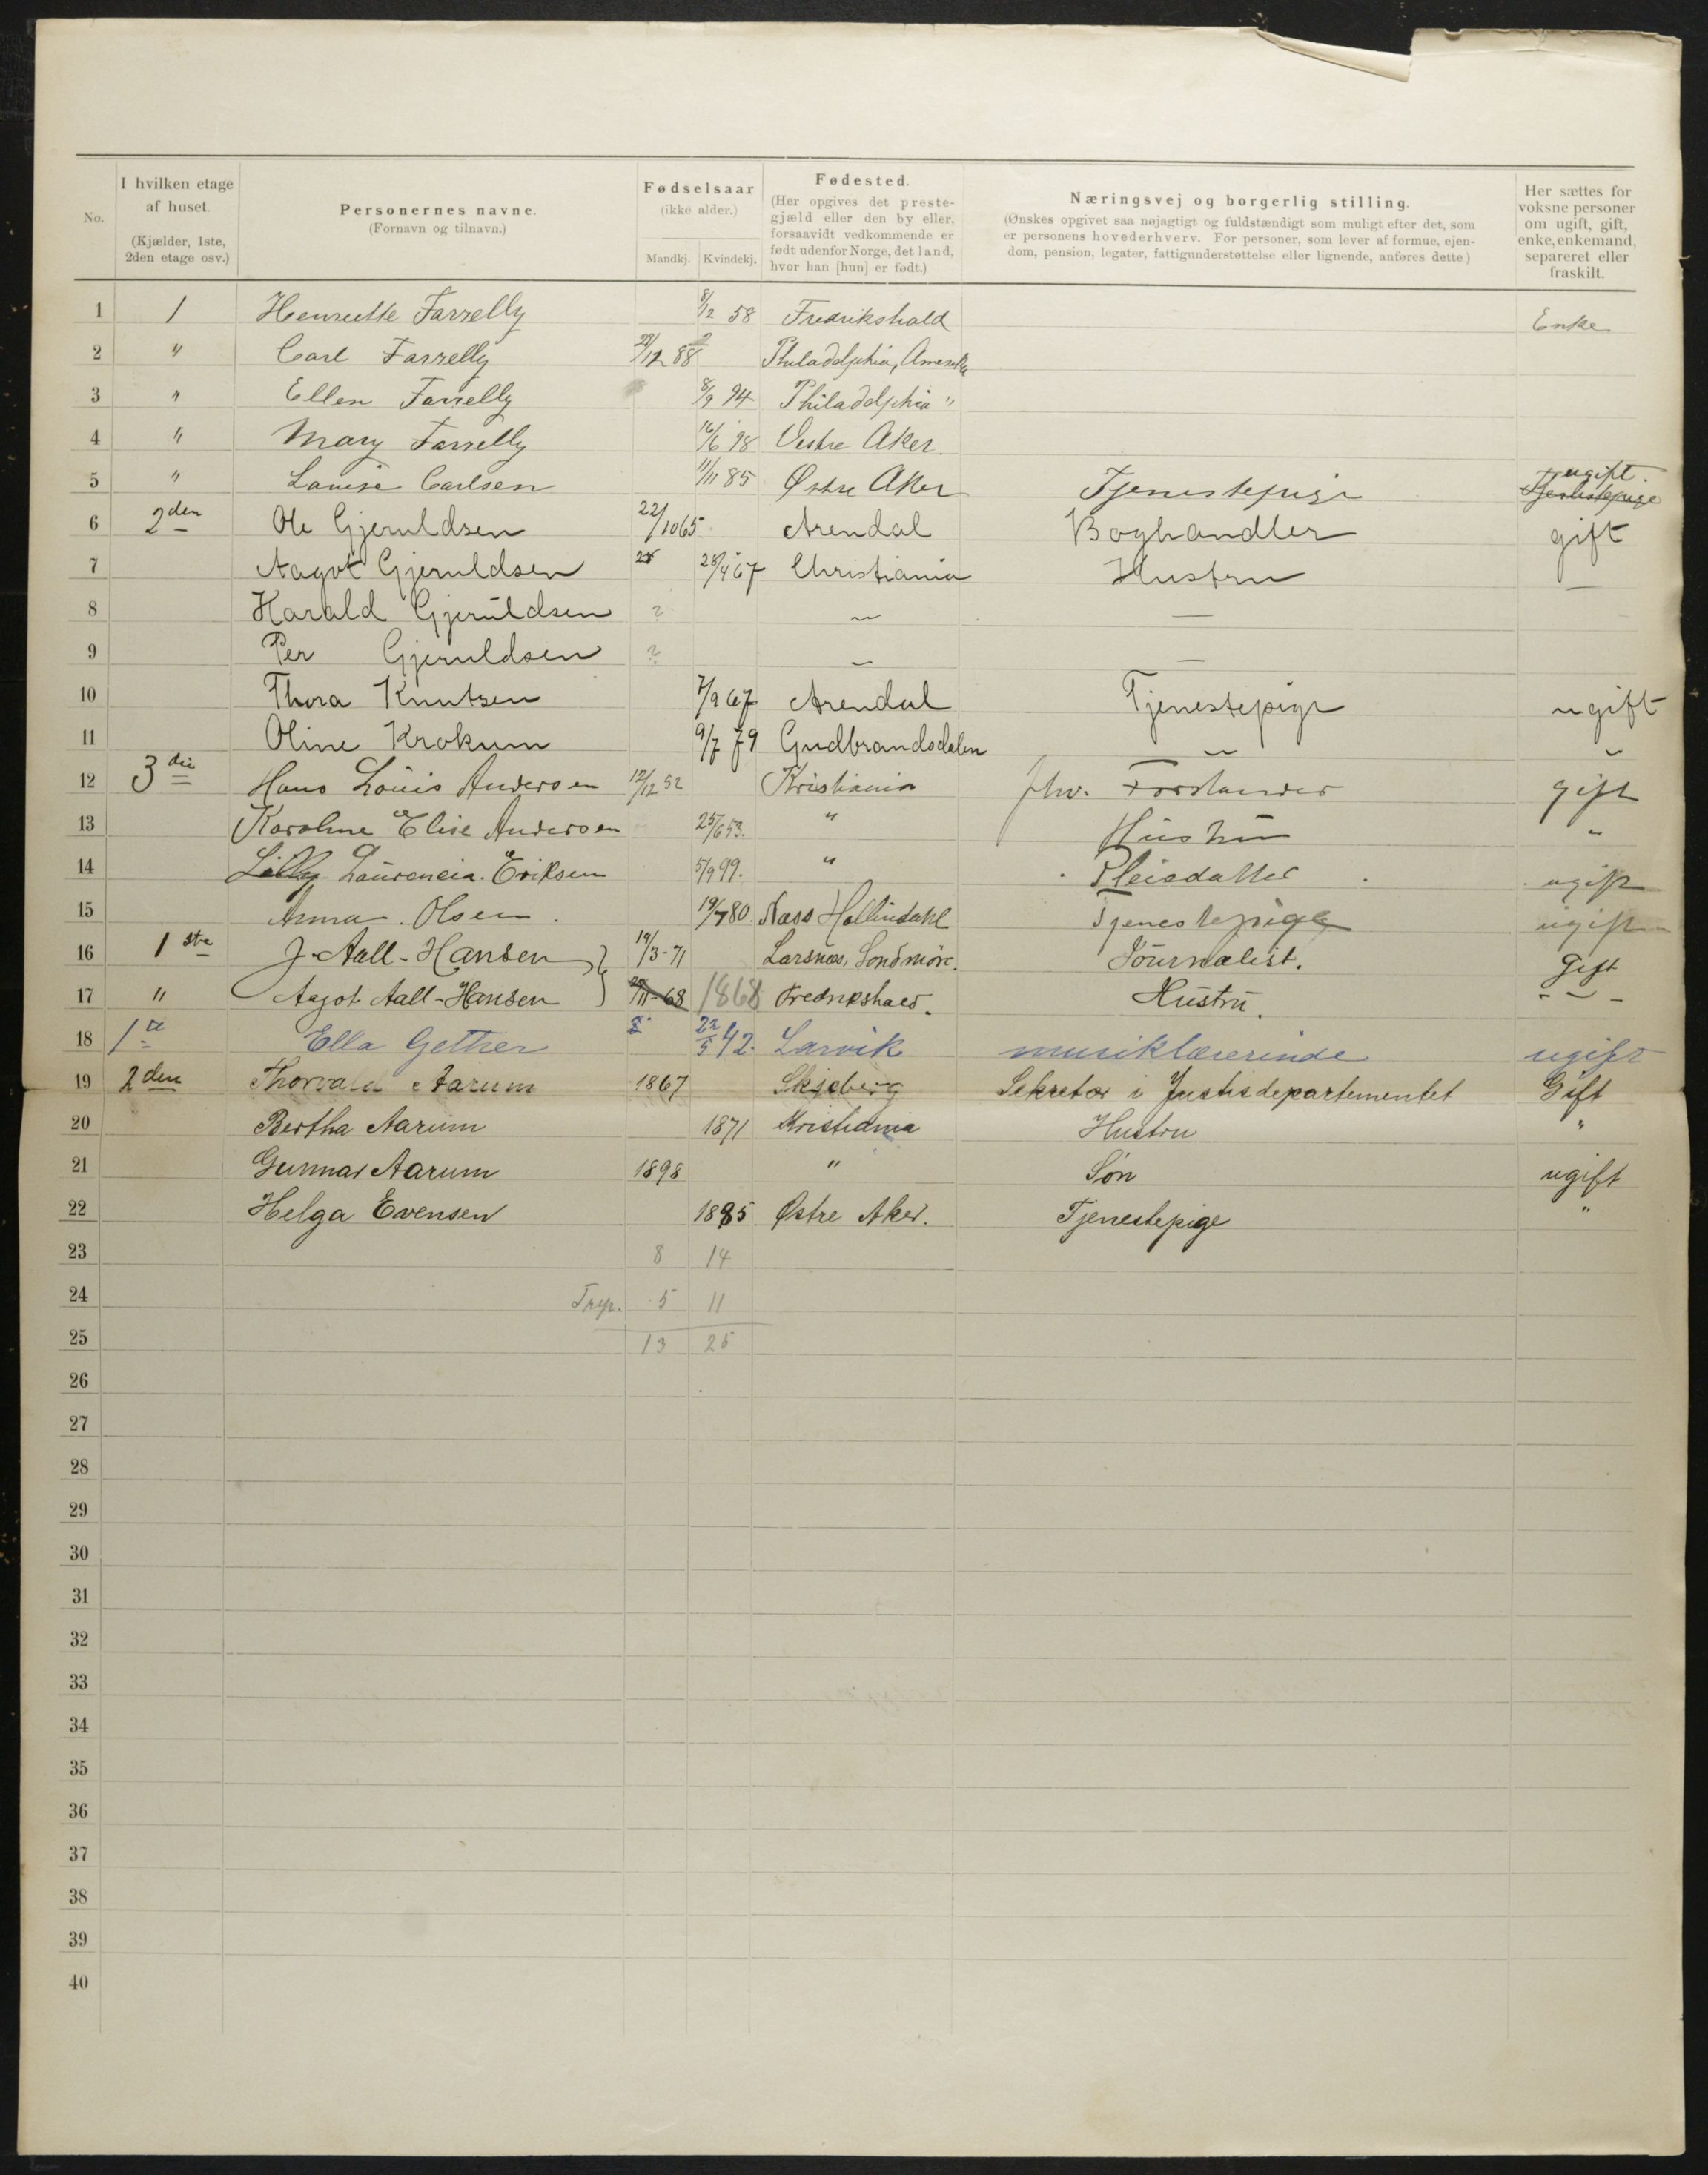 No.
I hvilken etage af huset.
(Kjælder, 1ste, 2den etage osv.)
Personernes navne.
(Fornavn og tilnavn.)
Fødselsaar
(ikke alder.)
Mandkj. Kvindekj.
Fødested.
(Her opgives det preste-
gjæld eller den by eller,
forsaavidt vedkommende er
født udenfor Norge, det land,
hvor han [hun] er født.)
Næringsvej og borgerlig stilling.
(Ønskes opgivet saa nøjagtigt og fuldstændigt som muligt efter det, som
er personens hovederhverv. For personer, som lever af formue, ejen-
dom, pension, legater, fattigunderstøttelse eller lignende, anføres dette)
Her sættes for
voksne personer
om ugift, gift,
enke, enkemand,
separeret eller
fraskilt.
1 1 Henriette Farrelly 8/12 58 Fredrikshald Enke
2 " Carl Farrelly 12 88 Philadelphia, Amerika
3 " Ellen Farrelly 8/9 94 Philadelphia "
4 " Mary Farrelly 16/6 98 Vestre Aker.
5 " Louise Carlsen 11/11 85 Østre Aker Tjenestepige ugift. Tjenestepige
6 2den Ole Gjeruldsen 22/10 65 Arendal Boghandler gift
7 Aagot Gjeruldsen 28/4 67 Christiania Hustru —
8 Harald Gjeruldsen ? — —
9 Per Gjeruldsen ? — —
10 Thora Knutsen 7/9 67 Arendal Tjenestepige ugift
11 Oline Krokum 9/7 79 Gudbrandsdalen — —
12 3die Hans Louis Andersen 12/12 52 Kristiania fhv. Forstander gift
13 Karoline Elise Andersen 25/6 53. " Hustru "
14 Lilly Laurencia. Eriksen 5/9 99. " Pleiedatter ugift
15 Anna. Olsen. 19/7 80. Næss Hallindahl Tjenestepige ugift
16 1ste J. Aall-Hansen 19/3-71 Larsnæs, Søndmøre. Journalist. Gift
17 " Aagot Aall-Hansen 11-68 1868 Fredrikshald. Hustru. - - -
18 1te Ella Gether 22/5 42. Larvik musiklærerinde ugift
19 2den Thorvald Aarum 1867 Skjeberg Sekretær i Justisdepartementet Gift
20 Bertha Aarum 1871 Kristiania Hustru "
21 Gunnar Aarum 1898 " Søn ugift
22 Helga Evensen 1885 Østre Aker. Tjenestepige "
23 8 14
24 5 11
25 13 25
26
27
28
29
30
31
32
33
34
35
36
37
38
39
40